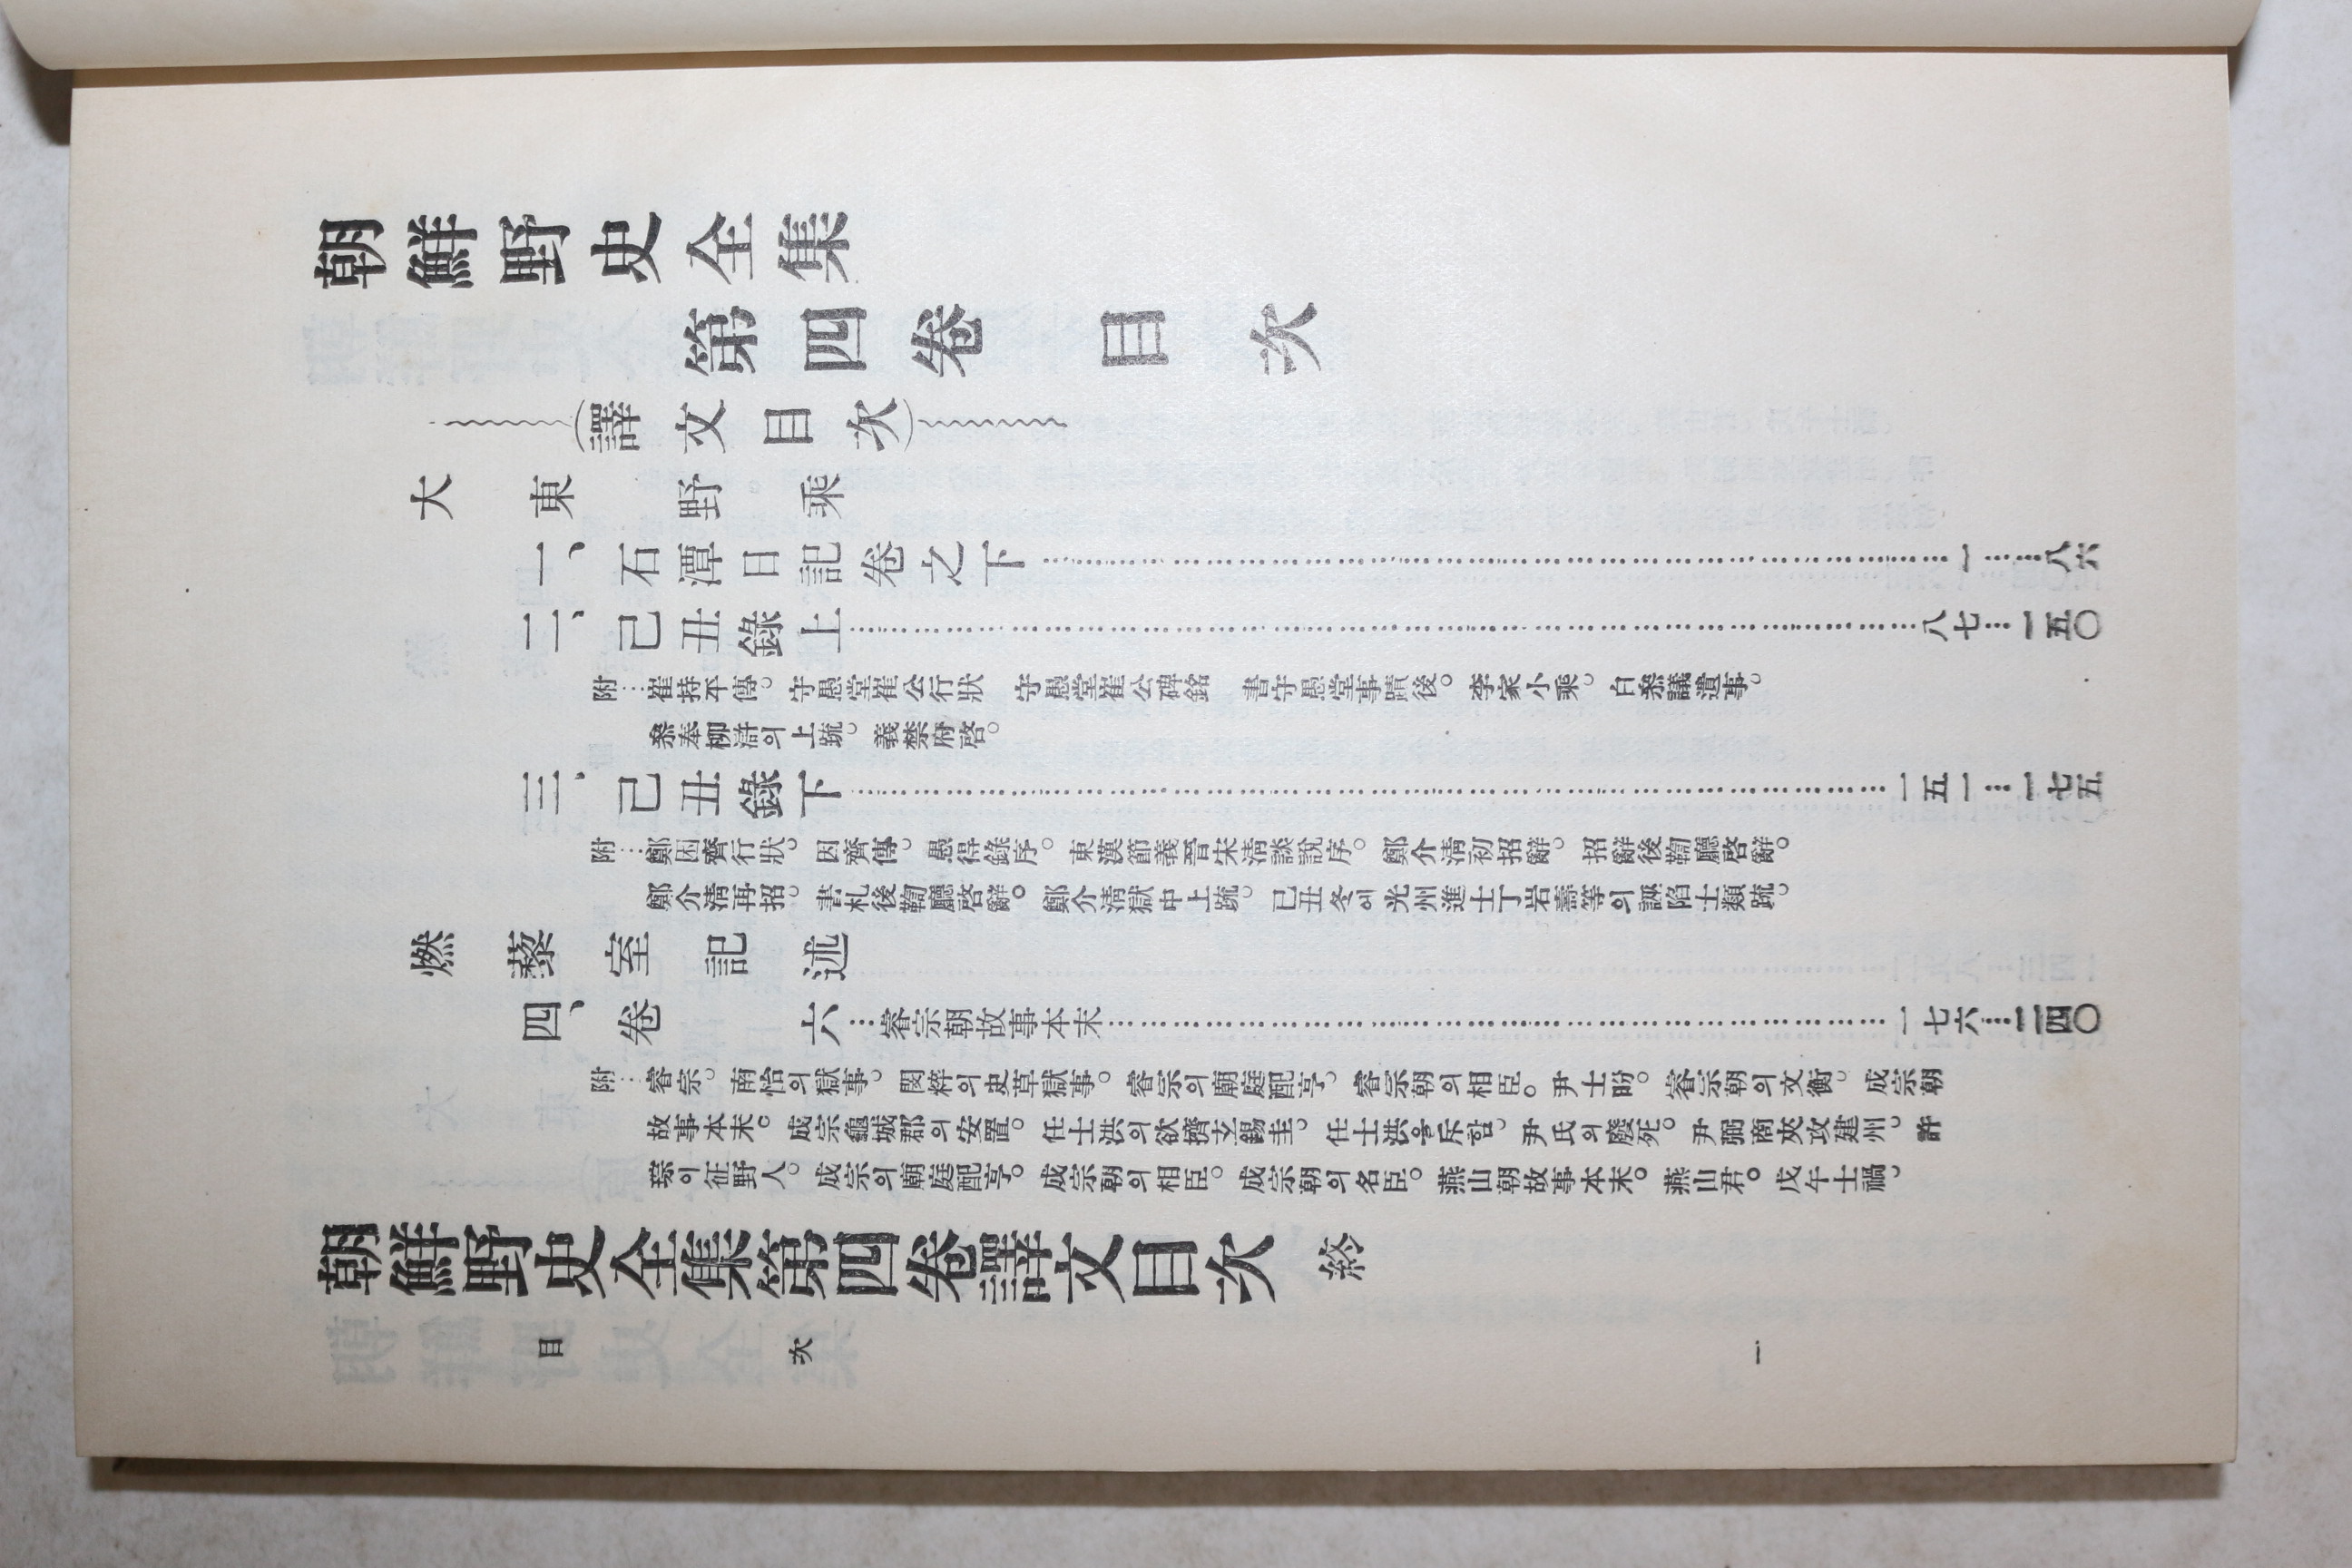 朝鮮野史全集
第四卷 目次
(譯文目次)
大東野乘
一、石潭日記卷之下……一……八六
二、己丑錄上……八七…一五〇
附…崔持本傳。守愚堂崔公行狀 守愚堂崔公碑銘 書守愚堂事蹟後。李家小乘。白叅議遺事。
叅奉柳滸의上疏。義禁府啓。
三、己丑錄下……一五一…一七五
附…鄭困齊行狀。因齊傳。愚得錄序。東漢節義晉宋淸談說序。鄭介淸初招辭。招辭後鞫廳啓辭。
鄭介淸再招。書札後鞫廳啓辭。鄭介淸獄中上疏。己丑冬에光州進士丁岩壽等의誣陷士類疏。
燃藜室記述
四、卷六…睿宗朝故事本末……一七六…二四〇
附…睿宗。南怡의獄事。閔粹의史草獄事。睿宗의廟庭配享。睿宗朝의相臣。尹士昐。睿宗朝의文衡。成宗朝
故事本末。成宗龜城郡의安置。任士洪의欲擠玄錫圭。任士洪을斥함。尹氏의廢死。尹弼商夾攻建州。許
琮이征野人。成宗의廟庭配享。成宗朝의相臣。成宗朝의名臣。燕山朝故事本末。燕山君。戊午士禍。
朝鮮野史全集第四卷譯文目次 終
目次 一